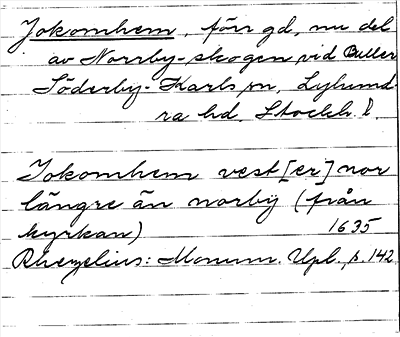 Jokomhem, förr gd, nu del
av Norrby-skogen vid Buller
Söderby-Karls sn, Lyhund-
ra hd. Stockh. l.
Jokomhem vest[er] nor
längre än norbÿ (från
kyrkan) 1635
Rhezelius: Monum. Upl., p. 142